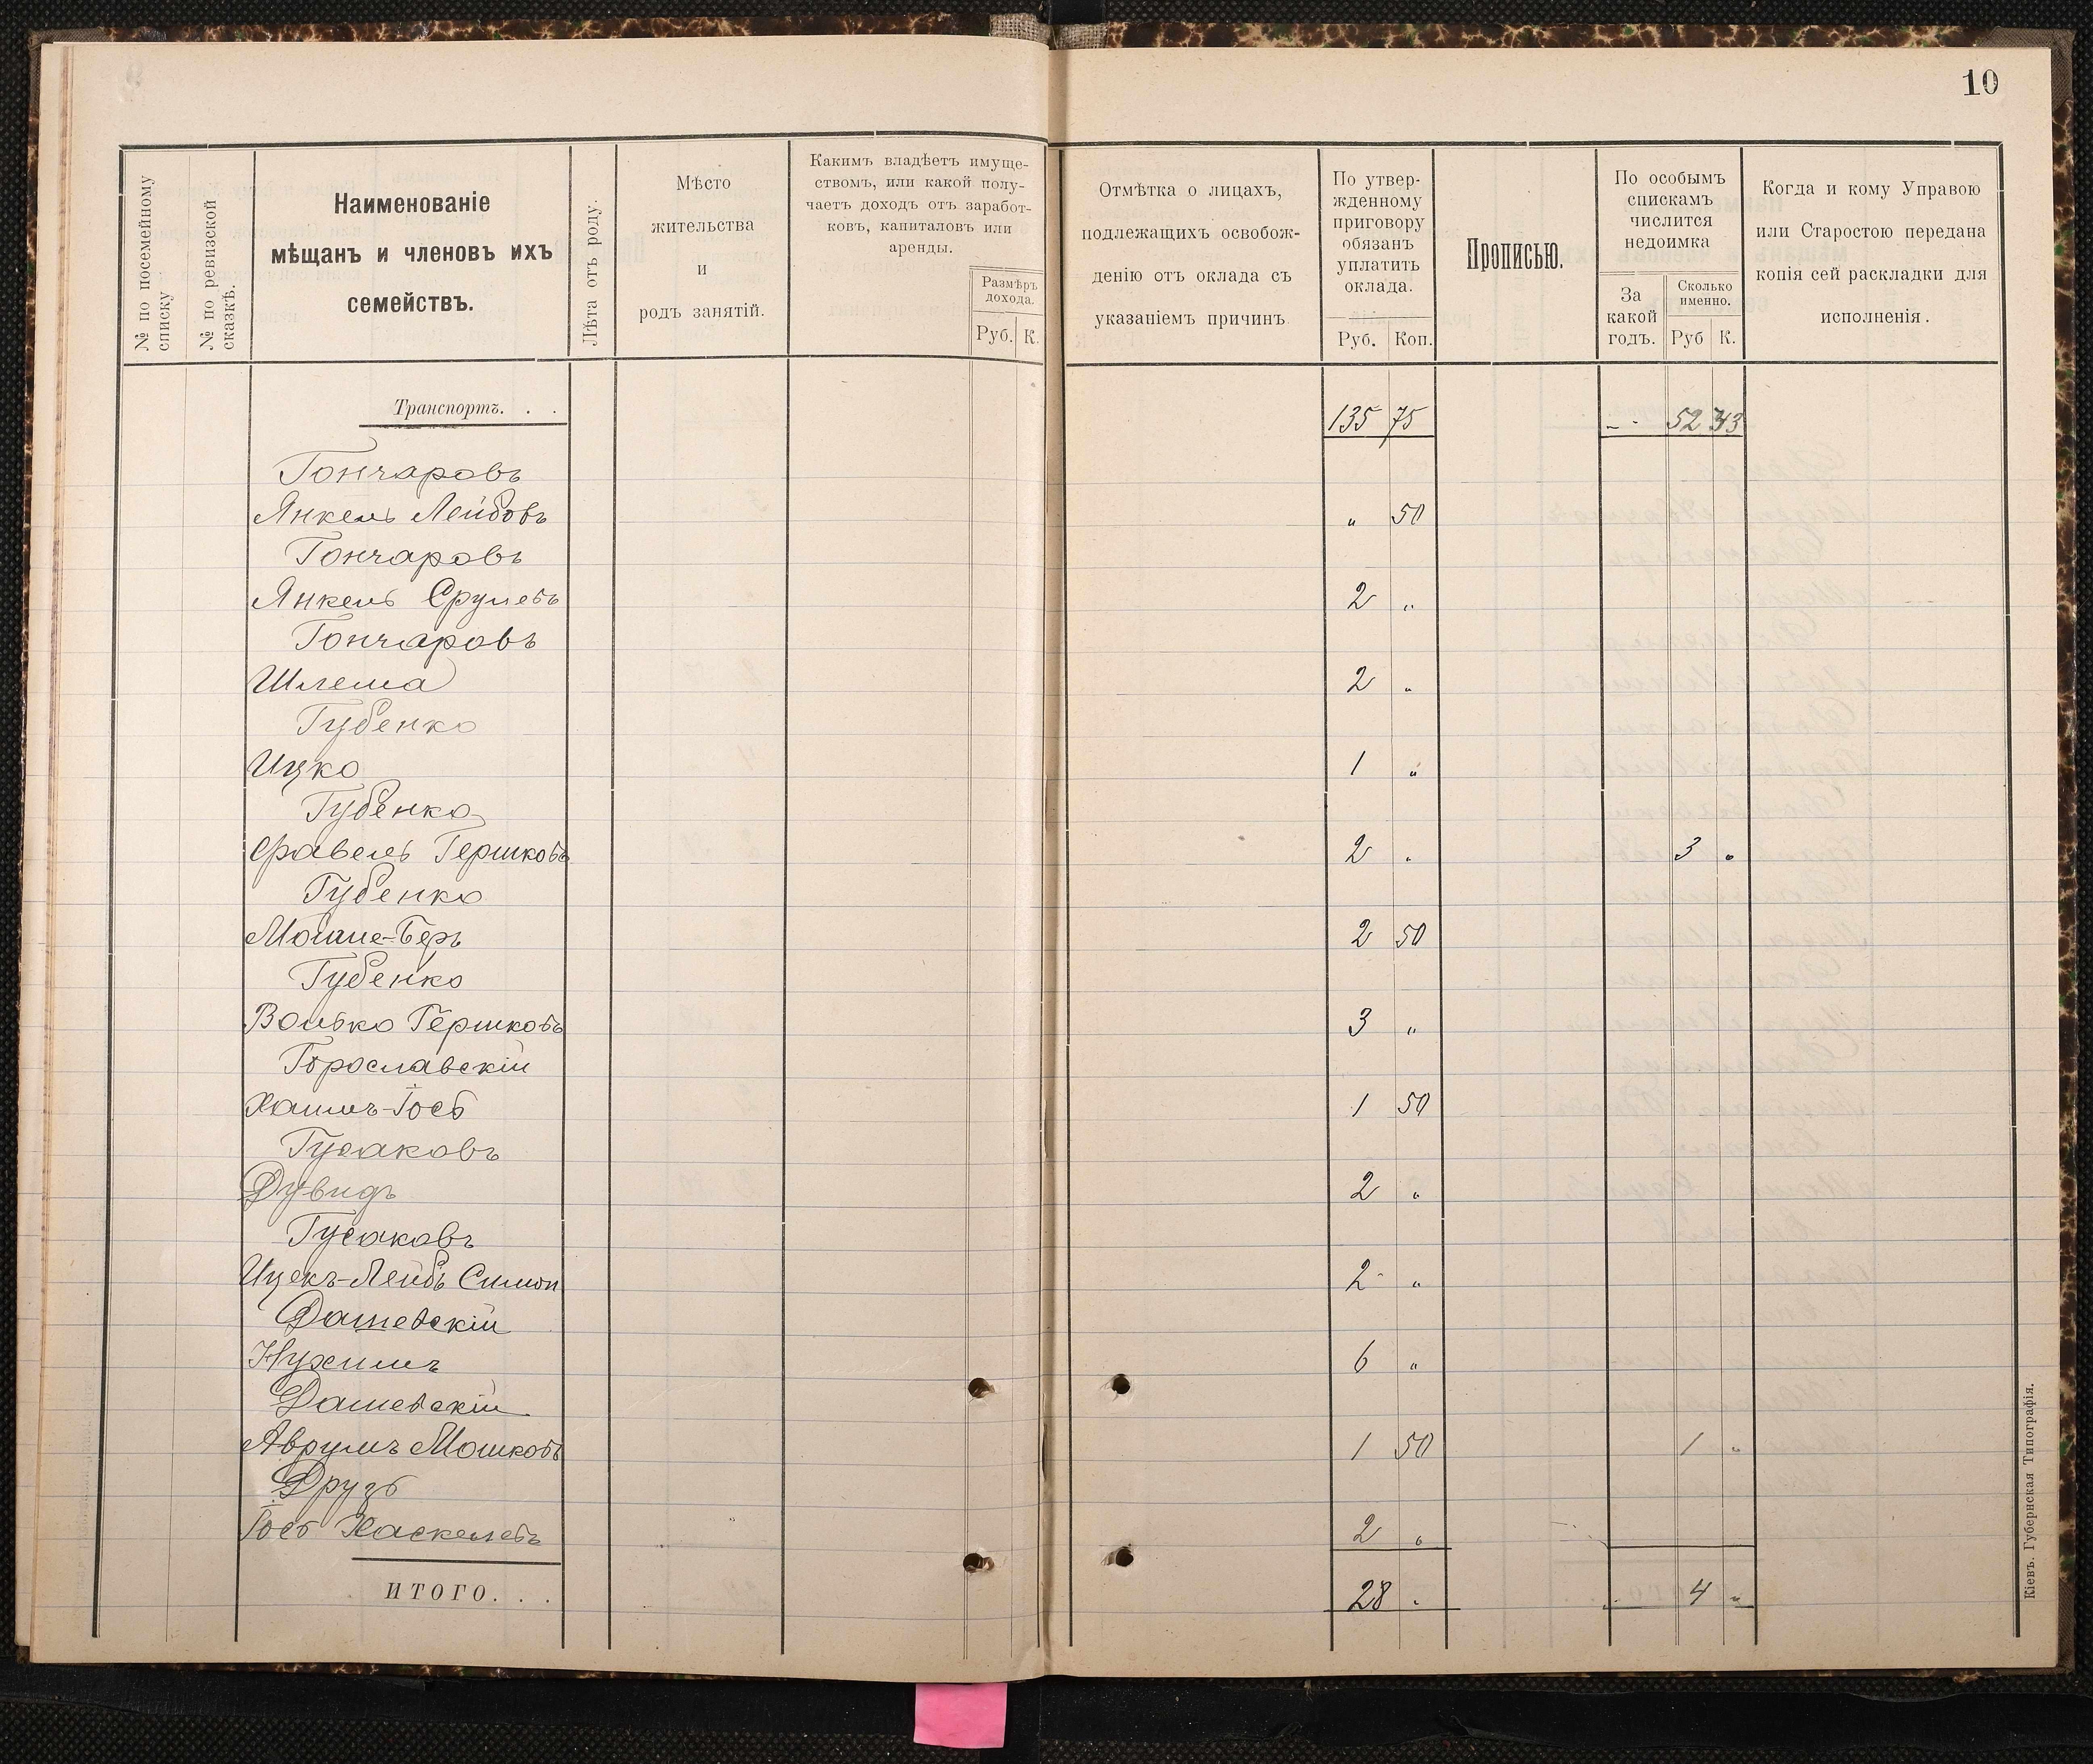 10
№ по посемейному списку
№ по ревизской сказкѣ.
Наименованіе
мѣщанъ и членовъ ихъ
семействъ.
Лѣта отъ роду.
Мѣсто
жительства
и
родъ занятій.
Какимъ владѣетъ имуще-
ствомъ, или какой полу-
чаетъ доходъ отъ заработ-
ковъ, капиталовъ или
аренды.
Размѣръ
дохода.
Руб. К.
Отмѣтка о лицахъ,
подлежащихъ освобож-
денію отъ оклада съ
указаніемъ причинъ
По утвер-
жденному
приговору
обязанъ
уплатить
оклада.
Руб. Коп.
Прописью.
По особымъ
спискамъ
числится
недоимка
За
какой
годъ.
Сколько
именно.
Руб К.
Когда и кому Управою
или Старостою передана
копія сей раскладки для
исполненія.
Транспортъ. . . 135 75 52 43
Гончаровъ
Янкель Лейбовъ " 50
Гончаровъ
Янкель Срулевъ 2 "
Гончаровъ
Шлема 2 "
Губенко
Ицко 1 "
Губенко
Фавель Гершковъ 2 " 3 "
Губенко
Мойше-Беръ 2 50
Губенко
Волько Гершковъ 3 "
Горославскій
Хаимъ-Іосъ 1 50
Гусаковъ
Дувидъ 2 "
Гусаковъ
Ицекъ-Лейбъ Симон 2 "
Дашевскій
Нухимъ 6 "
Дашевскій
Аврумъ Мошковъ 1 50 1 "
Друзъ
Іосъ Хаскелевъ 2 "
ИТОГО. . . 28 " 4 "
Кіевъ. Губернская Типографія.